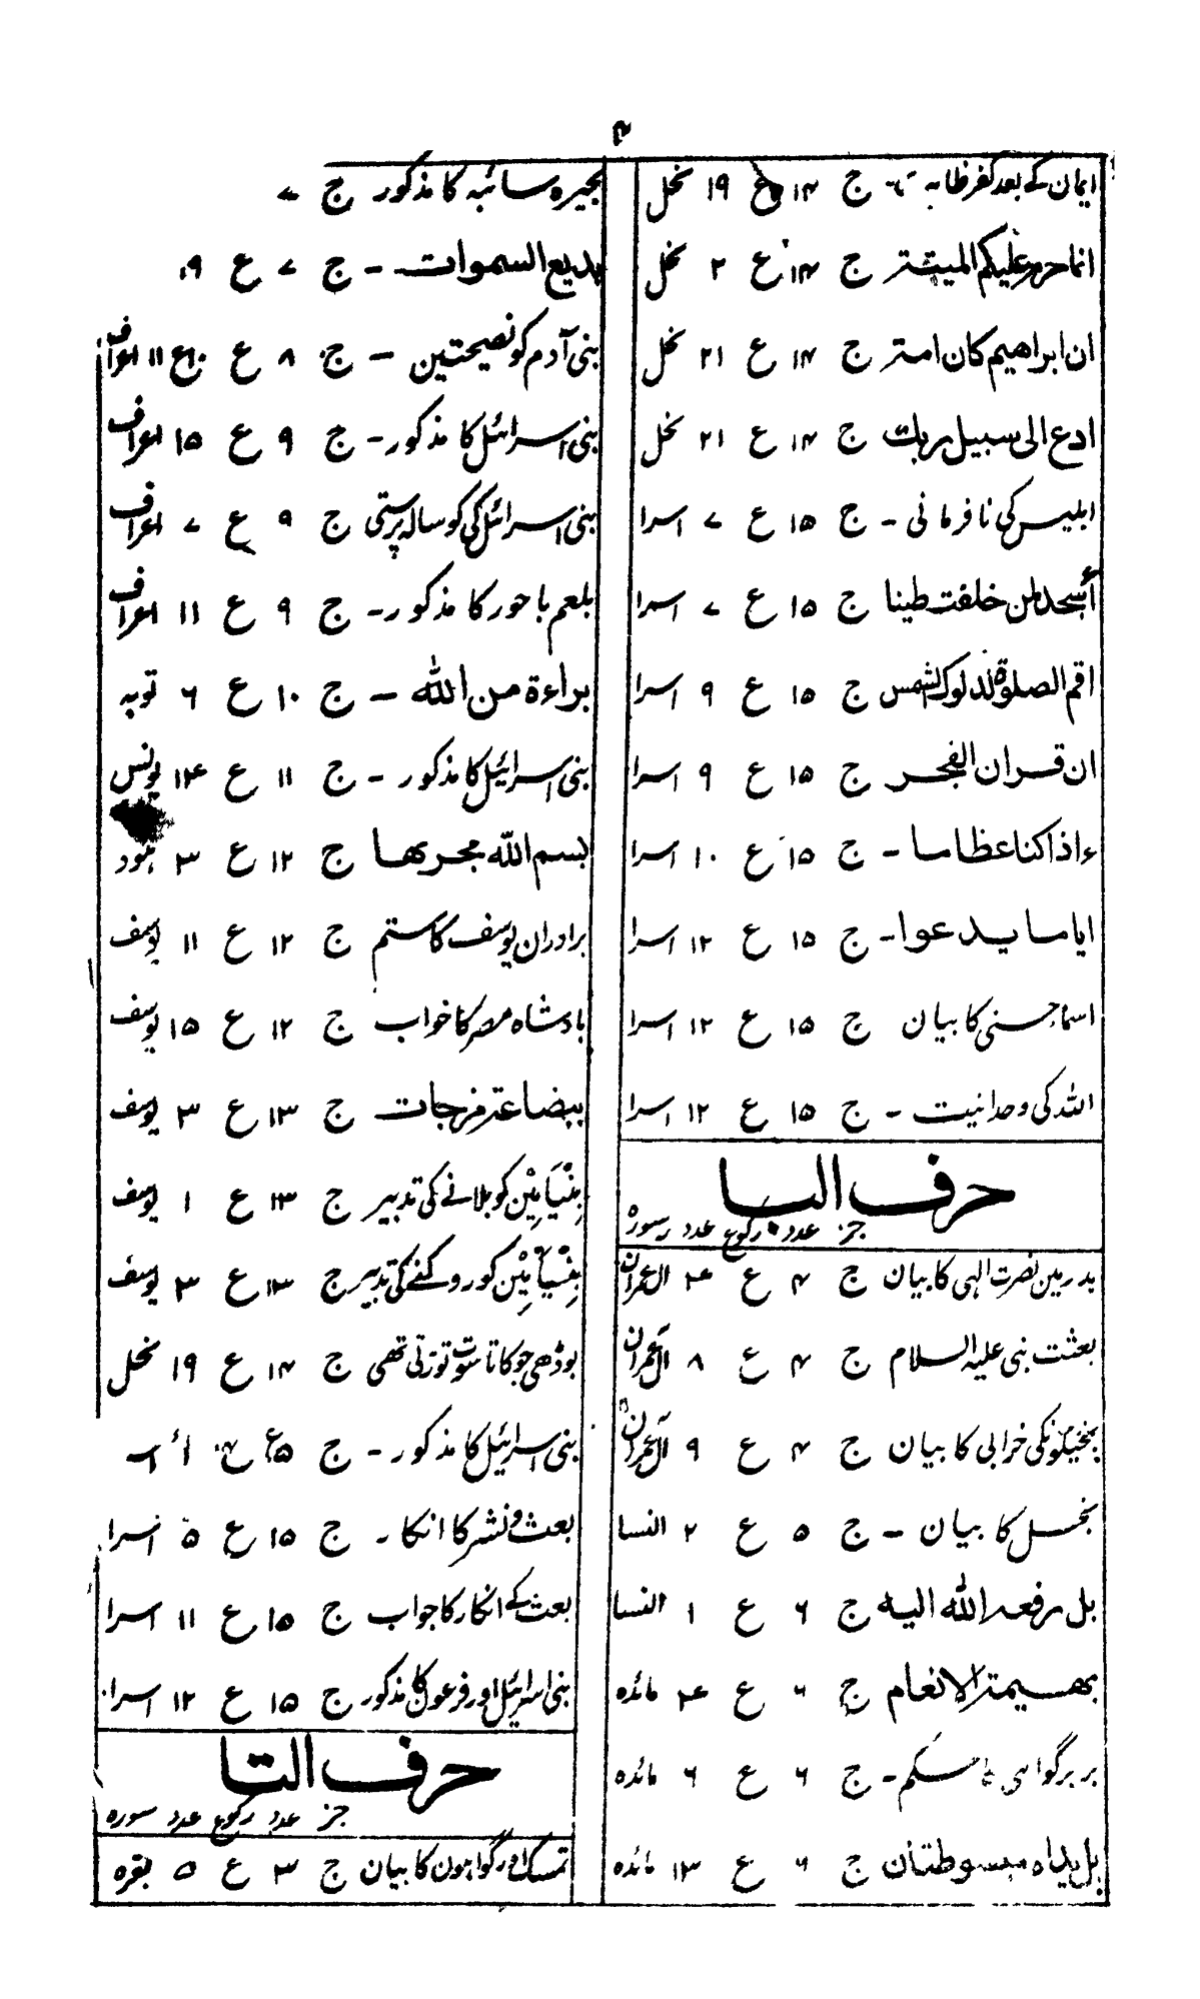 ۴
ایمان کے بعد کفر ج ۱۴ ع ۱۹ نحل
انما حرم علیکم المیتۃ ج ۱۴ ع ۲ نحل
ان ابراھیم کان امۃ ج ۱۴ ع ۲۱ نحل
ادع الی سبیل ربک ج ۱۴ ع ۲۱ نحل
ابلیس کی نافرمانی - ج ۱۵ ع ۷ اسرا
أسجد لمن خلقت طینا ج ۱۵ ع ۷ اسرا
اقم الصلوۃ لدلوک الشمس ج ۱۵ ع ۹ اسرا
ان قران الفجر ج ۱۵ ع ۹ اسرا
ءاذا کنا عظاما - ج ۱۵ ع ۱۰ اسرا
ایاما یدعوا - ج ۱۵ ع ۱۲ اسرا
اسما حسنی کا بیان ج ۱۵ ع ۱۲ اسرا
اللہ کی وحدانیت - ج ۱۵ ع ۱۲ اسرا
حرف البا
جز عدد رکوع عدد سورہ
بدر مین نصرت الہی کا بیان ج ۴ ع ۴ ال عمران
بعثت نبی علیہ السلام ج ۴ ع ۸ آل عمران
بخیلونکی خرابی کا بیان ج ۴ ع ۹ آل عمران
بخل کا بیان - ج ۵ ع ۲ النسا
بل رفعہ اللہ الیہ ج ۶ ع ۱ النسا
بھیمۃ الانعام ج ۶ ع ۴ مائدہ
ج ۶ ع ۶ مائدہ
بل یداہ مبسوطتان ج ۶ ع ۱۳ مائدہ
بحیرہ سائبہ کا مذکور ج ۷
بدیع السموات - ج ۷ ع ۱۹
بنی آدم کو نصیحتین - ج ۸ ع ۱۰ ع ۱۱ اعراف
بنی اسرائل کا مذکور - ج ۹ ع ۱۵ اعراف
بنی اسرائل کی گوسالہ پرستی ج ۹ ع ۷ اعراف
بلعم باحور کا مذکور - ج ۹ ع ۱۱ اعراف
براءۃ من اللہ - ج ۱۰ ع ۶ توبہ
بنی اسرائیل کا مذکور - ج ۱۱ ع ۱۴ یونس
بسم اللہ مجریھا ج ۱۲ ع ۳ ہود
برادران یوسف کا ستم ج ۱۲ ع ۱۱ یوسف
بادشاہ مصر کا خواب ج ۱۲ ع ۱۵ یوسف
ببضاعۃ مزجات ج ۱۳ ع ۳ یوسف
بِنْیَامِیْن کو بلانے کی تدبیر ج ۱۳ ع ۱ یوسف
بِنْیَامِیْن کو روکنے کی تدبیر ج ۱۳ ع ۳ یوسف
بوڈھی جو کاتا سوت توڑتی تھی ج ۱۴ ع ۱۹ نحل
بنی اسرائیل کا مذکور - ج ۱۵ ع
بعث و نشر کا انکار - ج ۱۵ ع ۵ اسرا
بعث کے انکار کا جواب ج ۱۵ ع ۱۱ اسرا
بنی اسرائیل اور فرعون کا مذکور ج ۱۵ ع ۱۲ اسرا
حرف التا
جز عدد رکوع عدد سورہ
تمسک اور گواہون کا بیان ج ۳ ع ۵ بقرہ